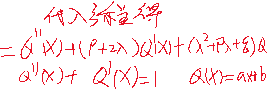 代入多余得
= Q''(X)+(P+2λ)Q'(X)+(λ²+Pλ+q)Q
Q''(X)+ Q'(X)=1 Q(X)=ax+b